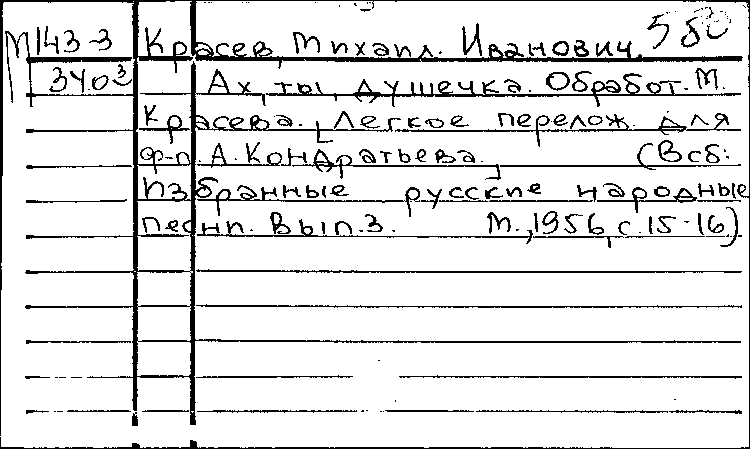 М143-3 Красев, Михаил. Иванович. 580
340³ Ах, ты, душечка. Обработ. М.
Красева. [Легкое перелож. для
ф-п. А. Кондратьева.] (В сб:
Избранные русские народные
песни. Вып. 3. М., 1956, с. 15-16)